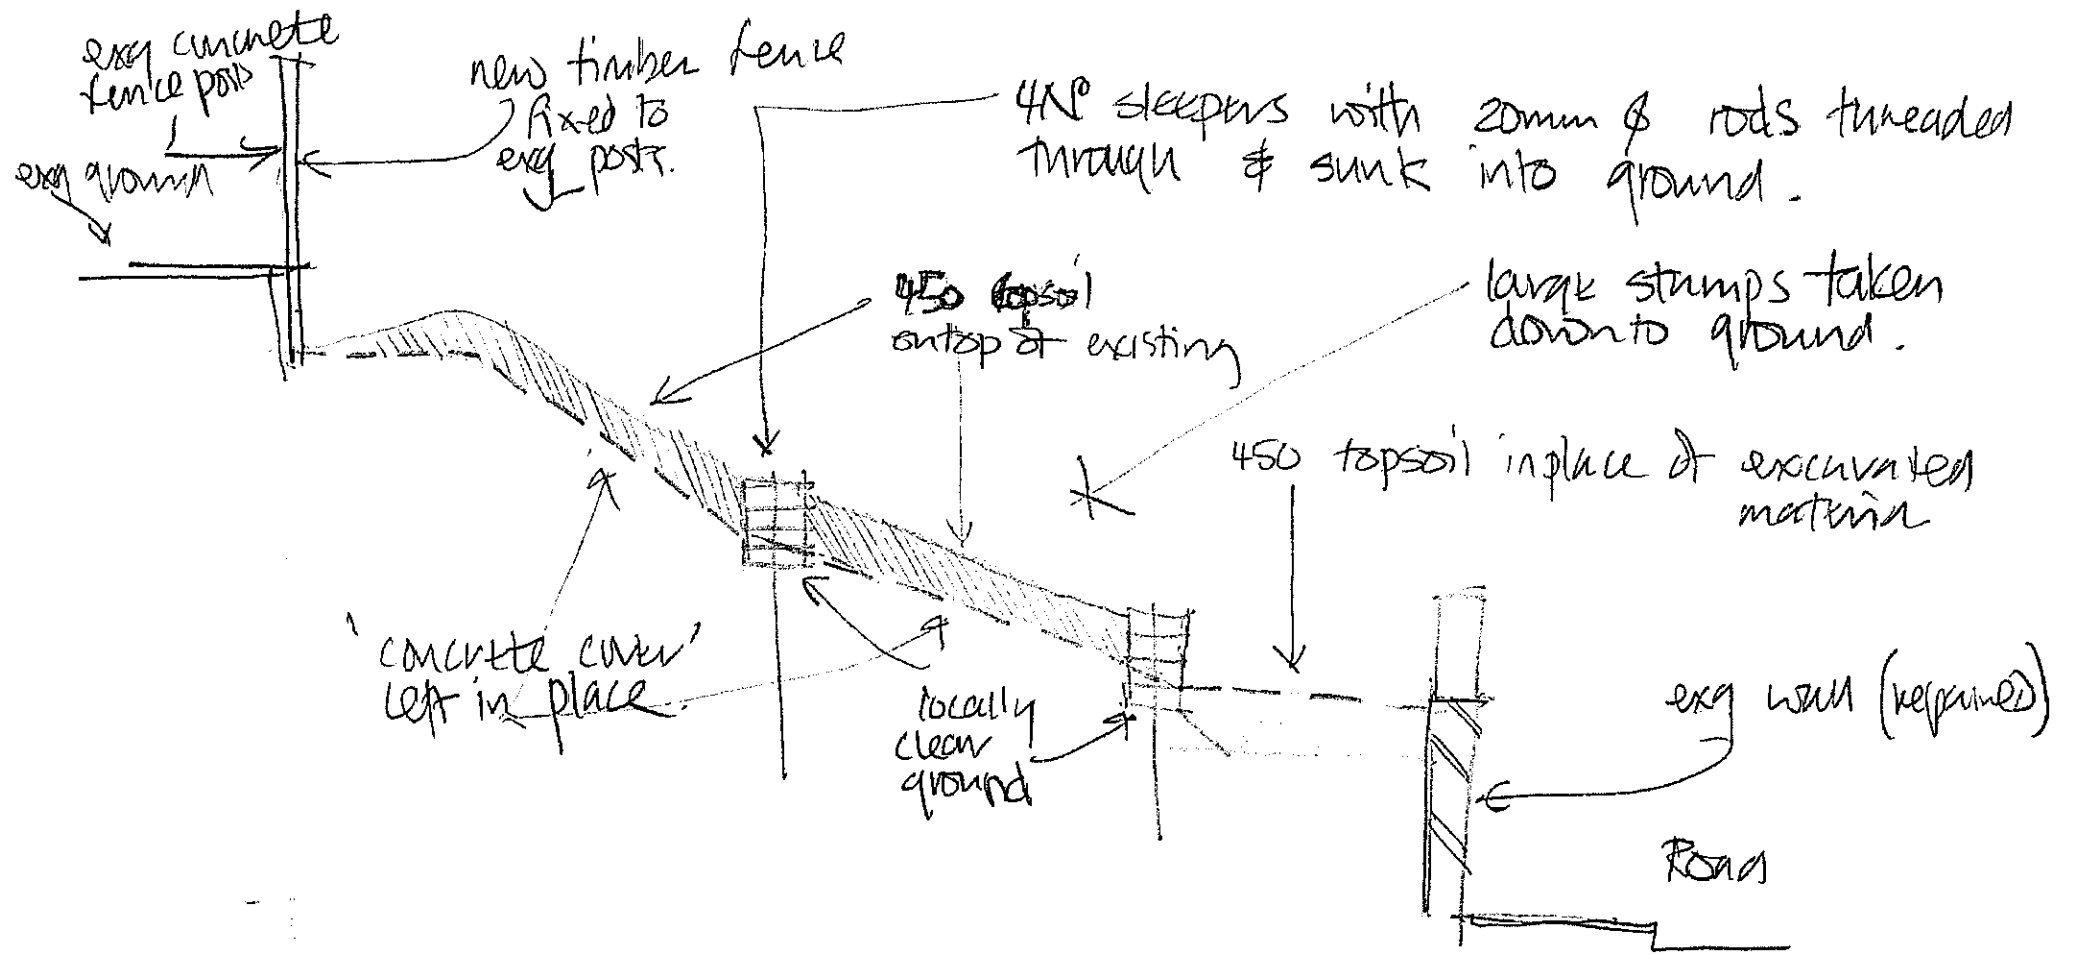 exg concrete
fence posts
exg ground
new timber fence
fixed to
exg posts.
4No sleepers with 20mm φ rods threaded
through & sunk into ground.
450 topsoil
ontop of existing
large stumps taken
down to ground.
450 topsoil in place of excavated
material
'concrete cover'
left in place.
locally
clear
ground
exg wall (repaired)
Road